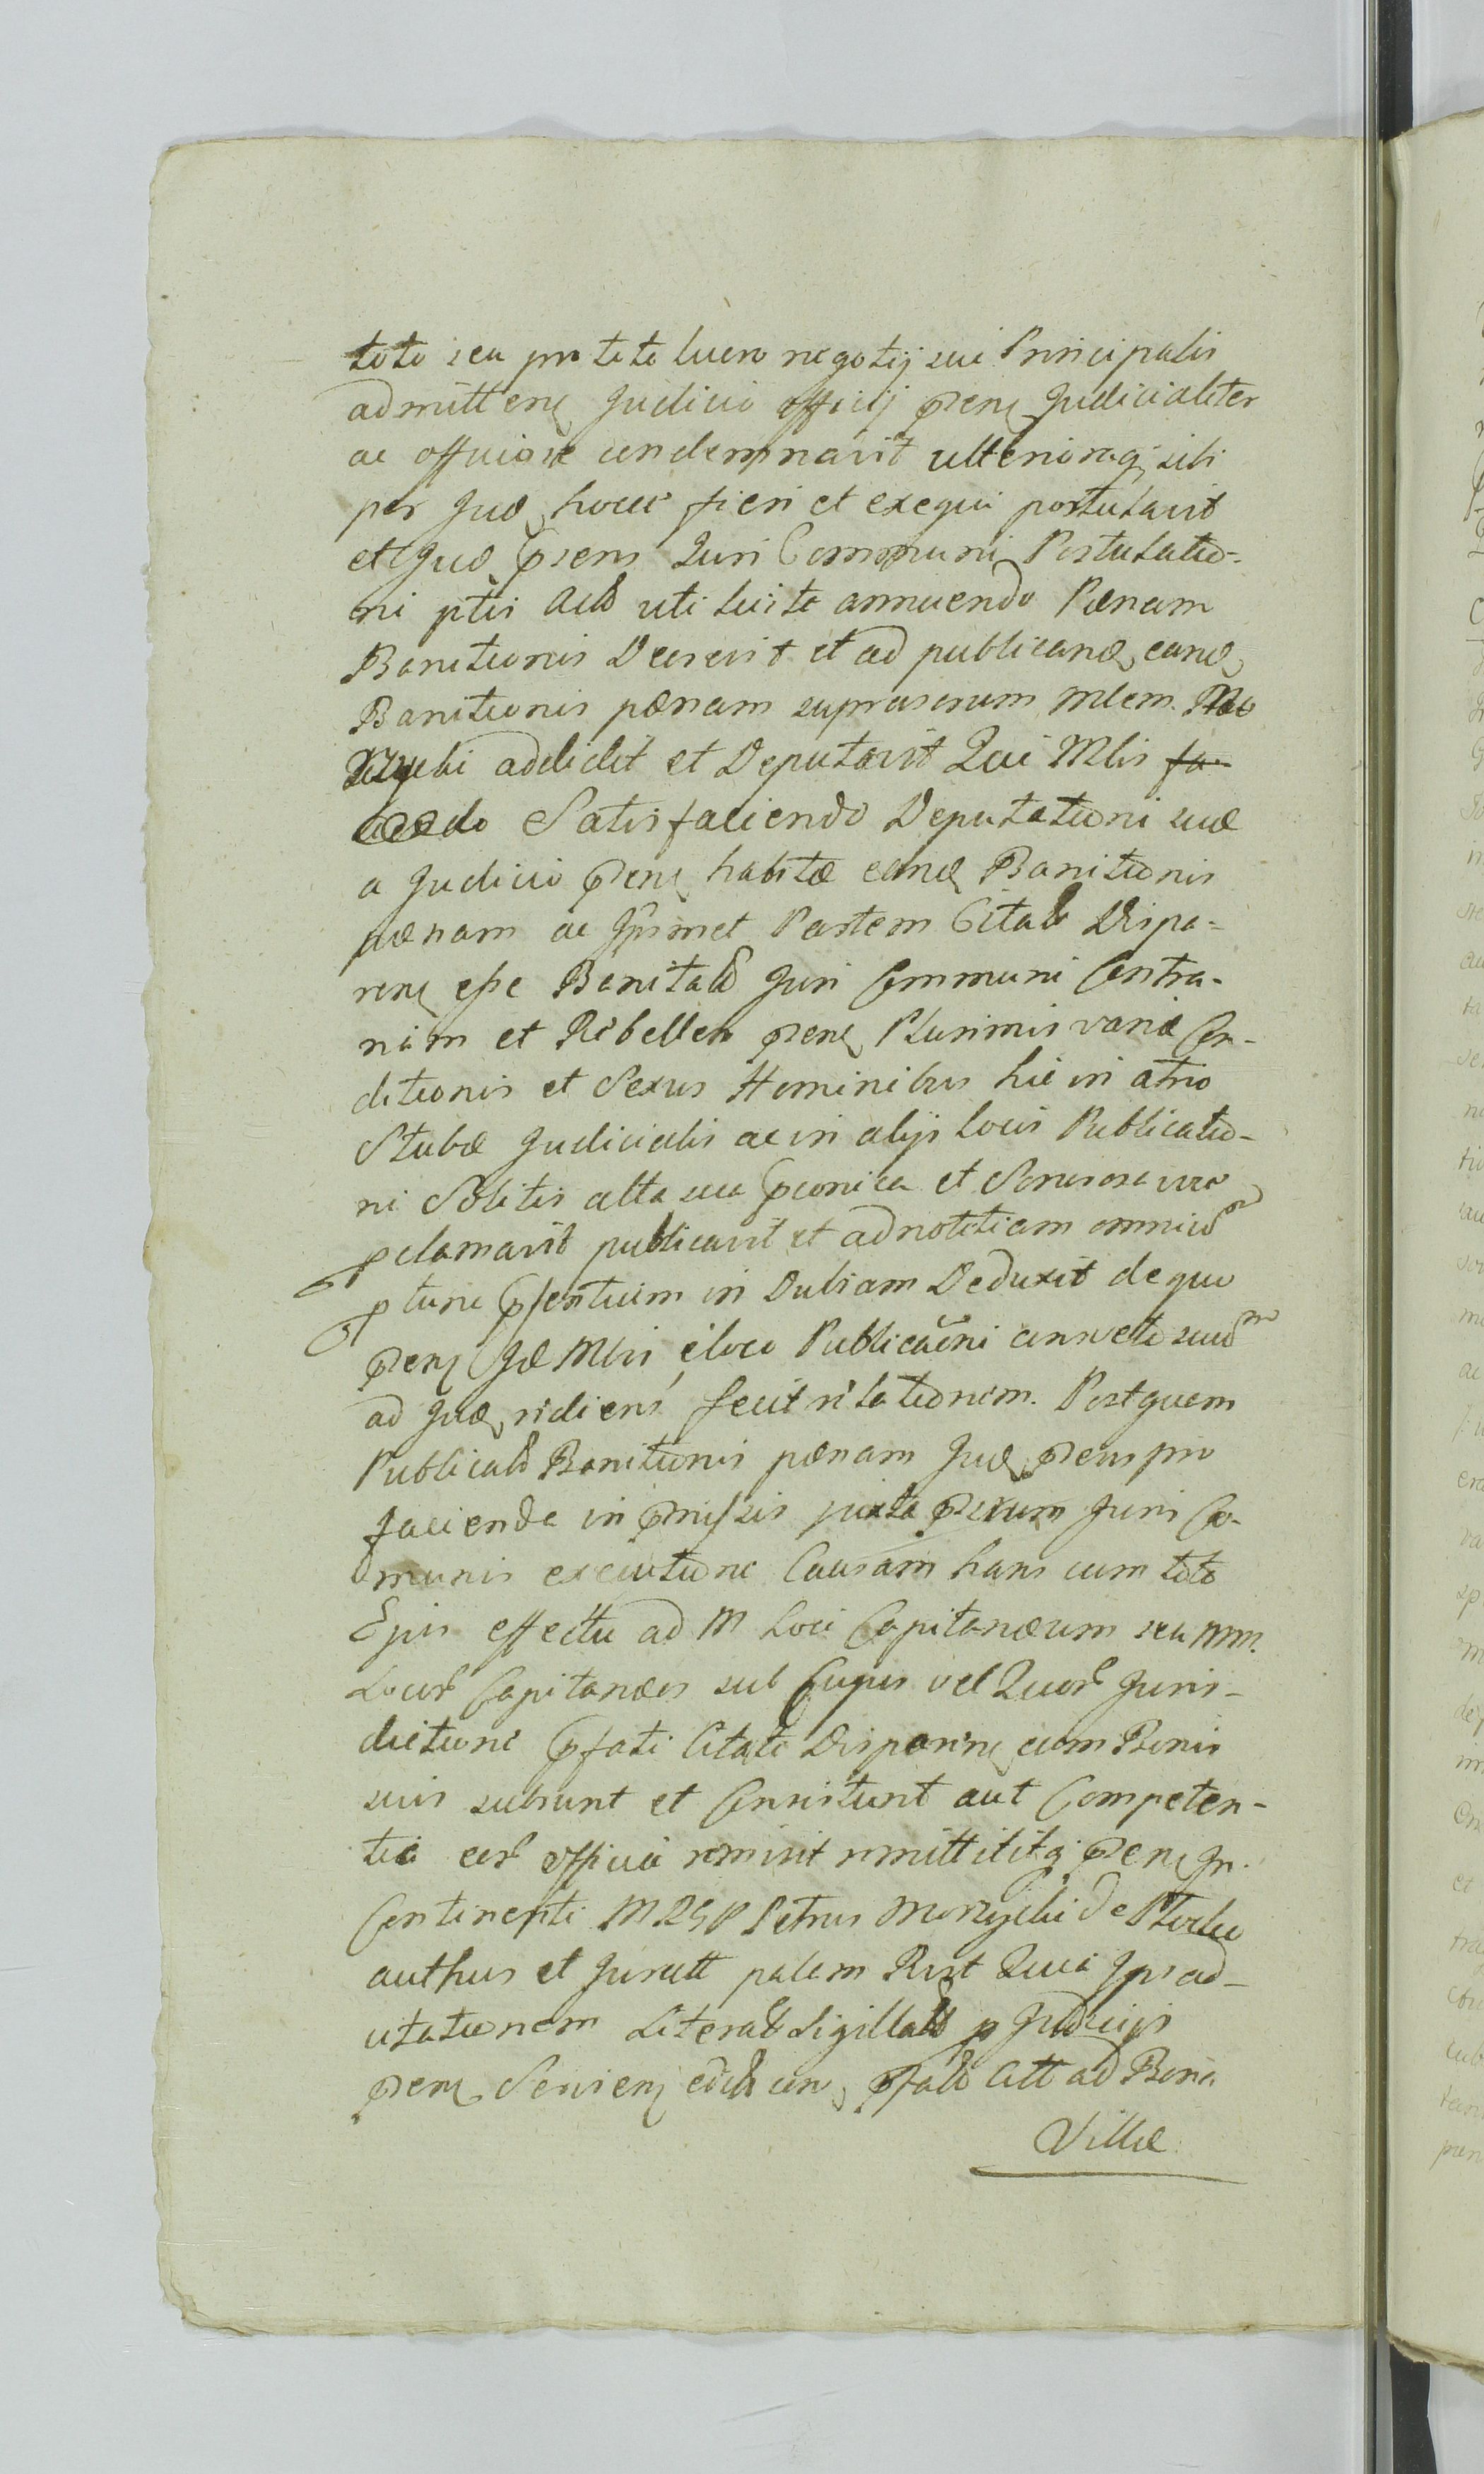 toto seu pro toto lucro negotij sui Principalis
admitten Judicio officij præn Judicialiter
ac officiose condemnavit ulterioraq sibi
per Jud hocce fieri et exequi postulavit
et Jud præsens Juri Communi Postulatio-
ni ptis Actt uti iusta annuendo Pœnam
Banitionis Decrevit et ad publicand eand
Banitionis pænam suprascrum Mlem
addidit et Deputavit Qui Mlis fa-
Satisfaciendo Deputationi suæ
a Judicio præn habitæ eand Banitionis
pænam ac Ipsmet Partem Citatt Dispa-
ren esse Banitatt Juri Communi Contra-
riam et Rebellem præn Plurimis variæ Con-
ditionis et Sexus Hominibus hic in atrio
Stubæ Judicialis ac in alijs locis Publicatio-
ni Solitis alta sua præonica et Sonorosa voce
pclamavit publicavit et ad notitiam omniu
ptunc præsentium in Dubiam Deduxit de quo
præn Id Mlis e loco Publicaõni consueto suu
ad Jud rediens fecit relationem. Postquam
Publicatt Banitionis pænam Jud præns pro
facienda in præmissis juxta præscrum Juris Co-
munis executione Causam hanc cum toto
Ejus effectu ad M Loci Capitanæum seu MM.
Locor Capitanæos sub Cujus vel Quor Juris-
dictione præfati Citati Disparen cum Bonis
suis subsunt et Consistunt aut Competen-
tia eor officia remisit remittititq præn In
Continenti M R G P Petrus Morzycki de
authus et Juratt palam Rert Quia Ipse ad
utationem Literatt Sigillatt p Judicijs
præn Servien edictt con præfatt Citt ad Bona
Villæ